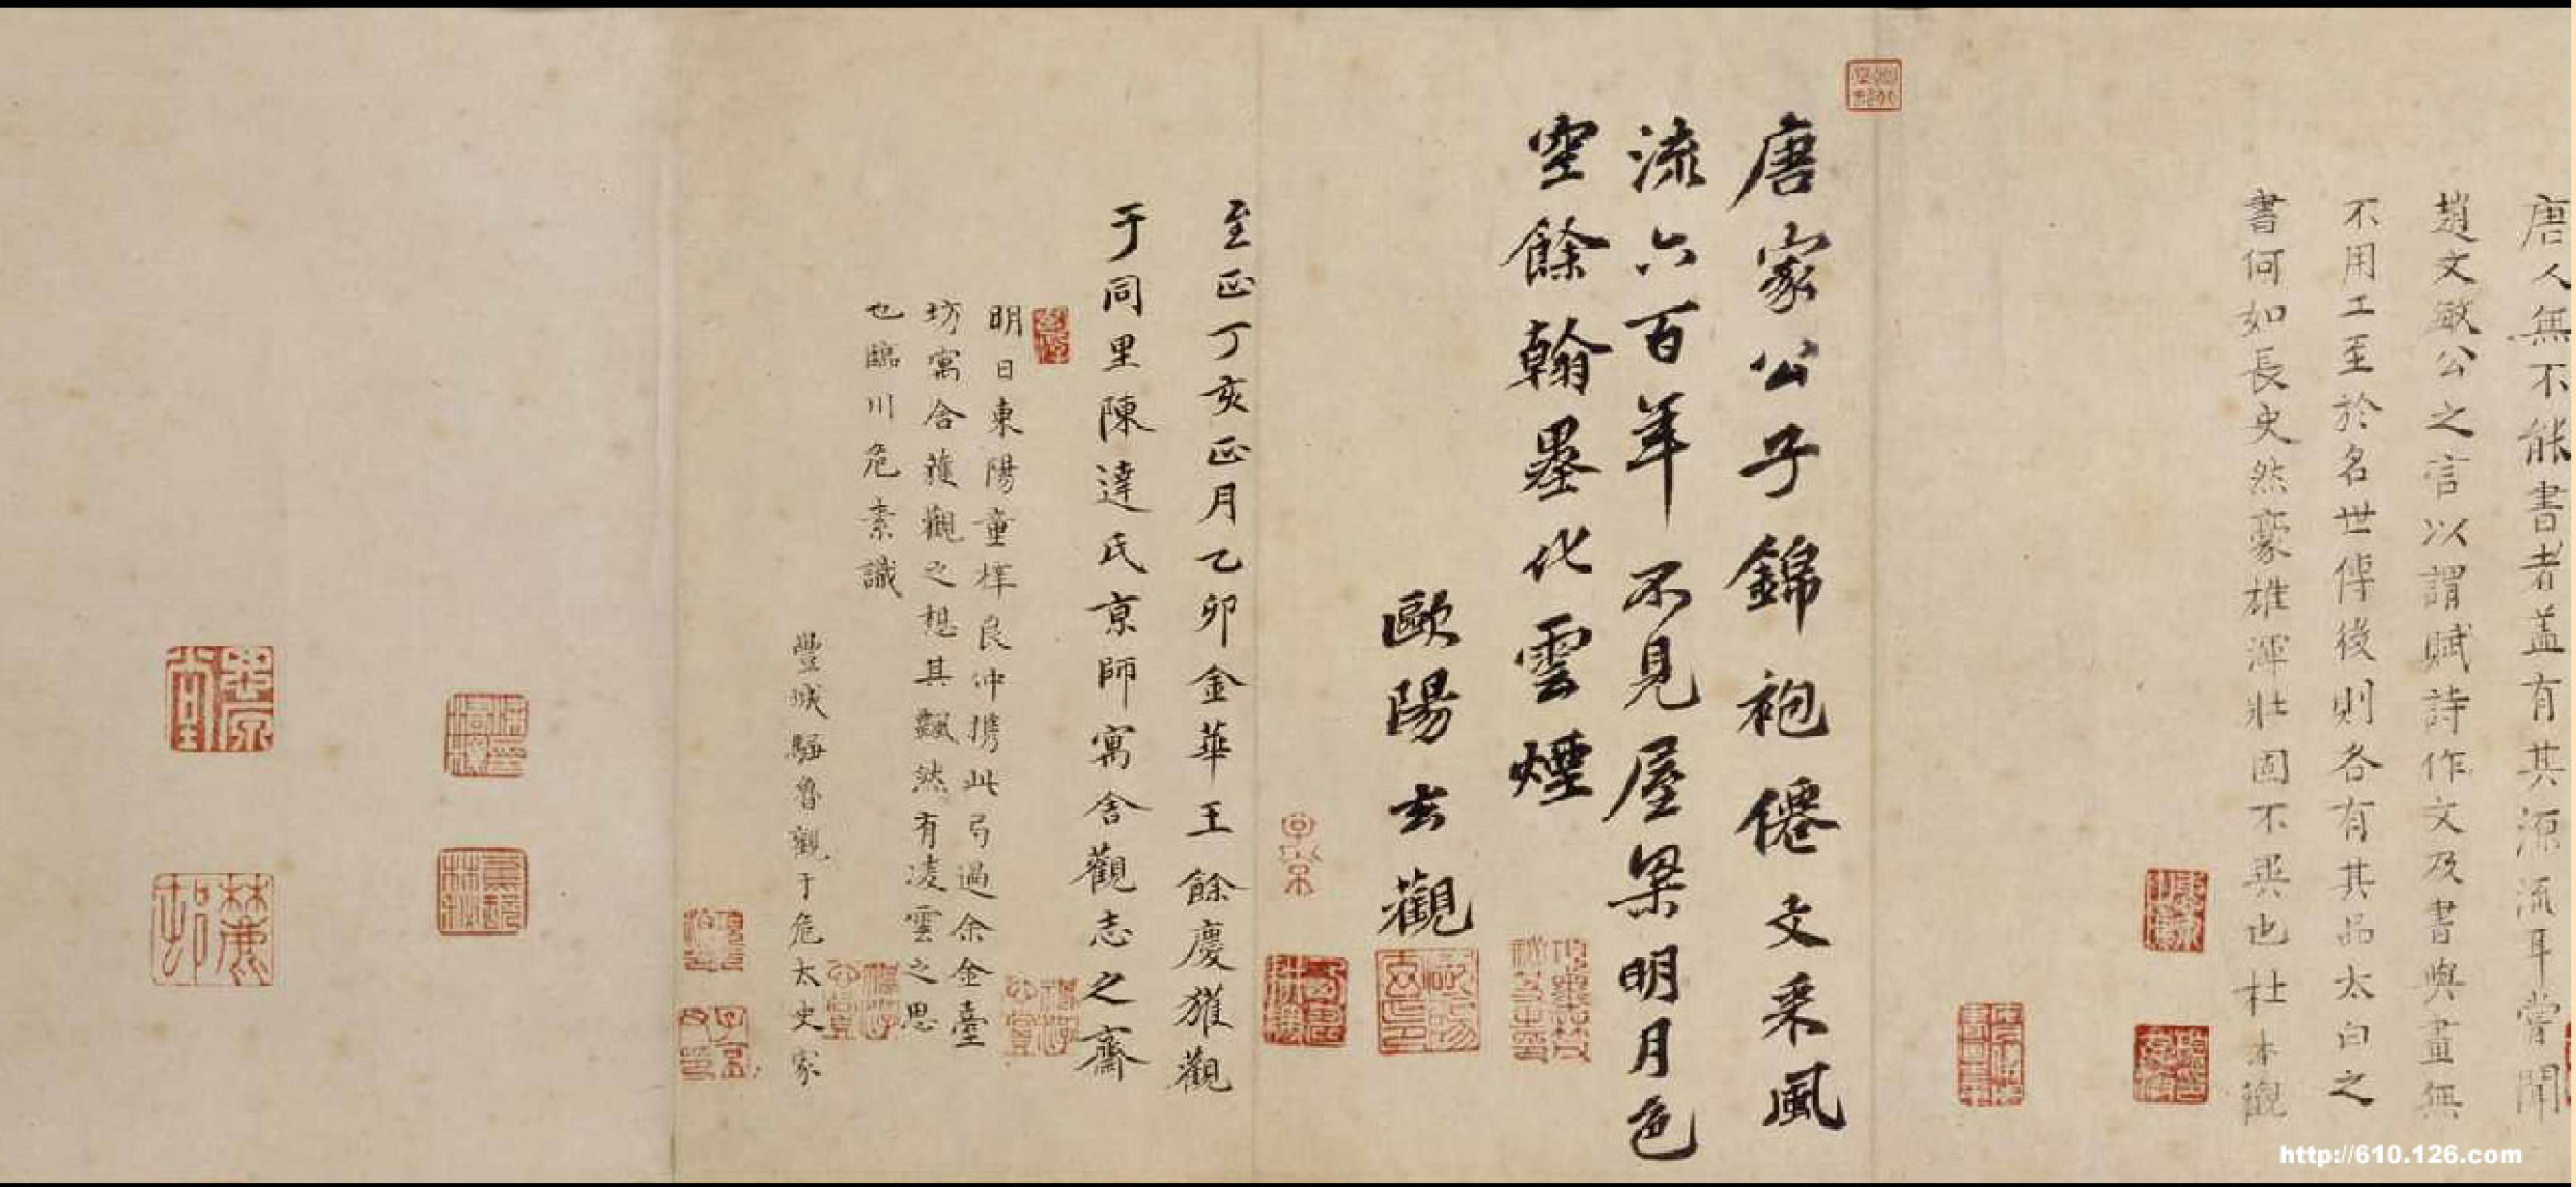 唐人無不能書者盖有其源流耳嘗聞
趙文敏公之言以謂賦詩作文及書與畫無
不用工至於名世傳後則各有其品太白之
書何如長史然豪雄渾壯固不異也杜本觀
唐家公子錦袍僊文采風
流六百年不見屋梁明月色
空餘翰墨化雲煙
歐陽玄觀
至正丁亥正月乙卯金華王餘慶獲觀
于同里陳達氏京師寓舍觀志之齋
明日東陽童梓良仲攜此弓過余金臺
坊寓舍獲觀之想其飄然有凌雲之思
也臨川危素識
豐城騶魯觀于危太史家
http://610.126.com